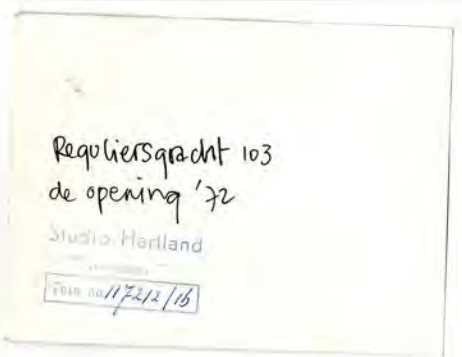 Reguliersgracht 103
de opening '72
Studio Hartland
Foto no 117212/16